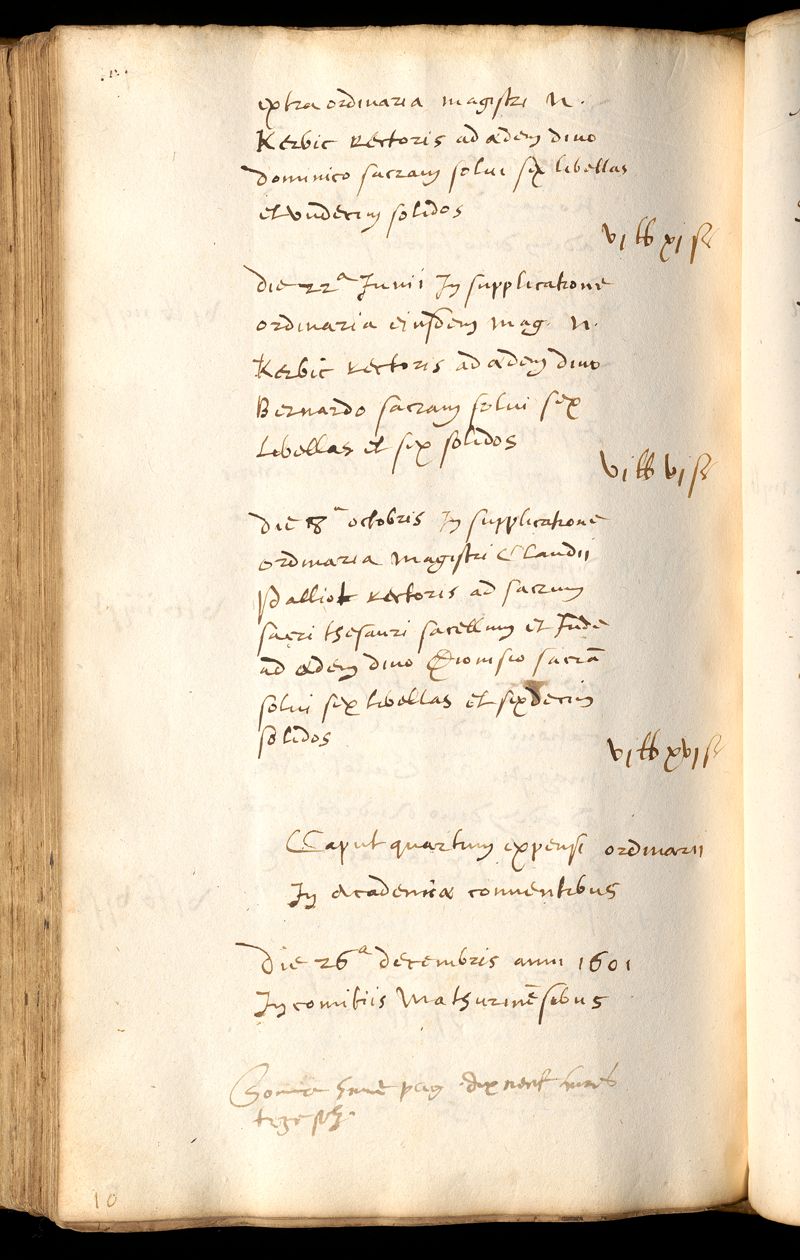 extraordinaria magistri N.
Kerbic rectoris ad ædem divo
dominico sacram solui sex libellas
et undecim solidos
vi lb xi s
Die 22a Junii In supplicatione
ordinaria eiusdem mag. N.
Kerbic rectoris ad ædem divo
Bernardo sacram solui sex
libellas et sex solidos
vi lb vi s
Die 8a octobris In supplicatione
ordinaria magistri Claudii
Palliot rectoris ad sacrum
sacri thesauri sacellum et Inde
ad ædem divo Dionisio sacrā
solui sex libellas et sexdecim
solidos
vi lb xvi s
Caput quartum expensi ordinarii
In Academiæ conventibus
Die 26a decembris anni 1601
In comitiis Mathurinēsibus
pag dix neuf livres
treze
10